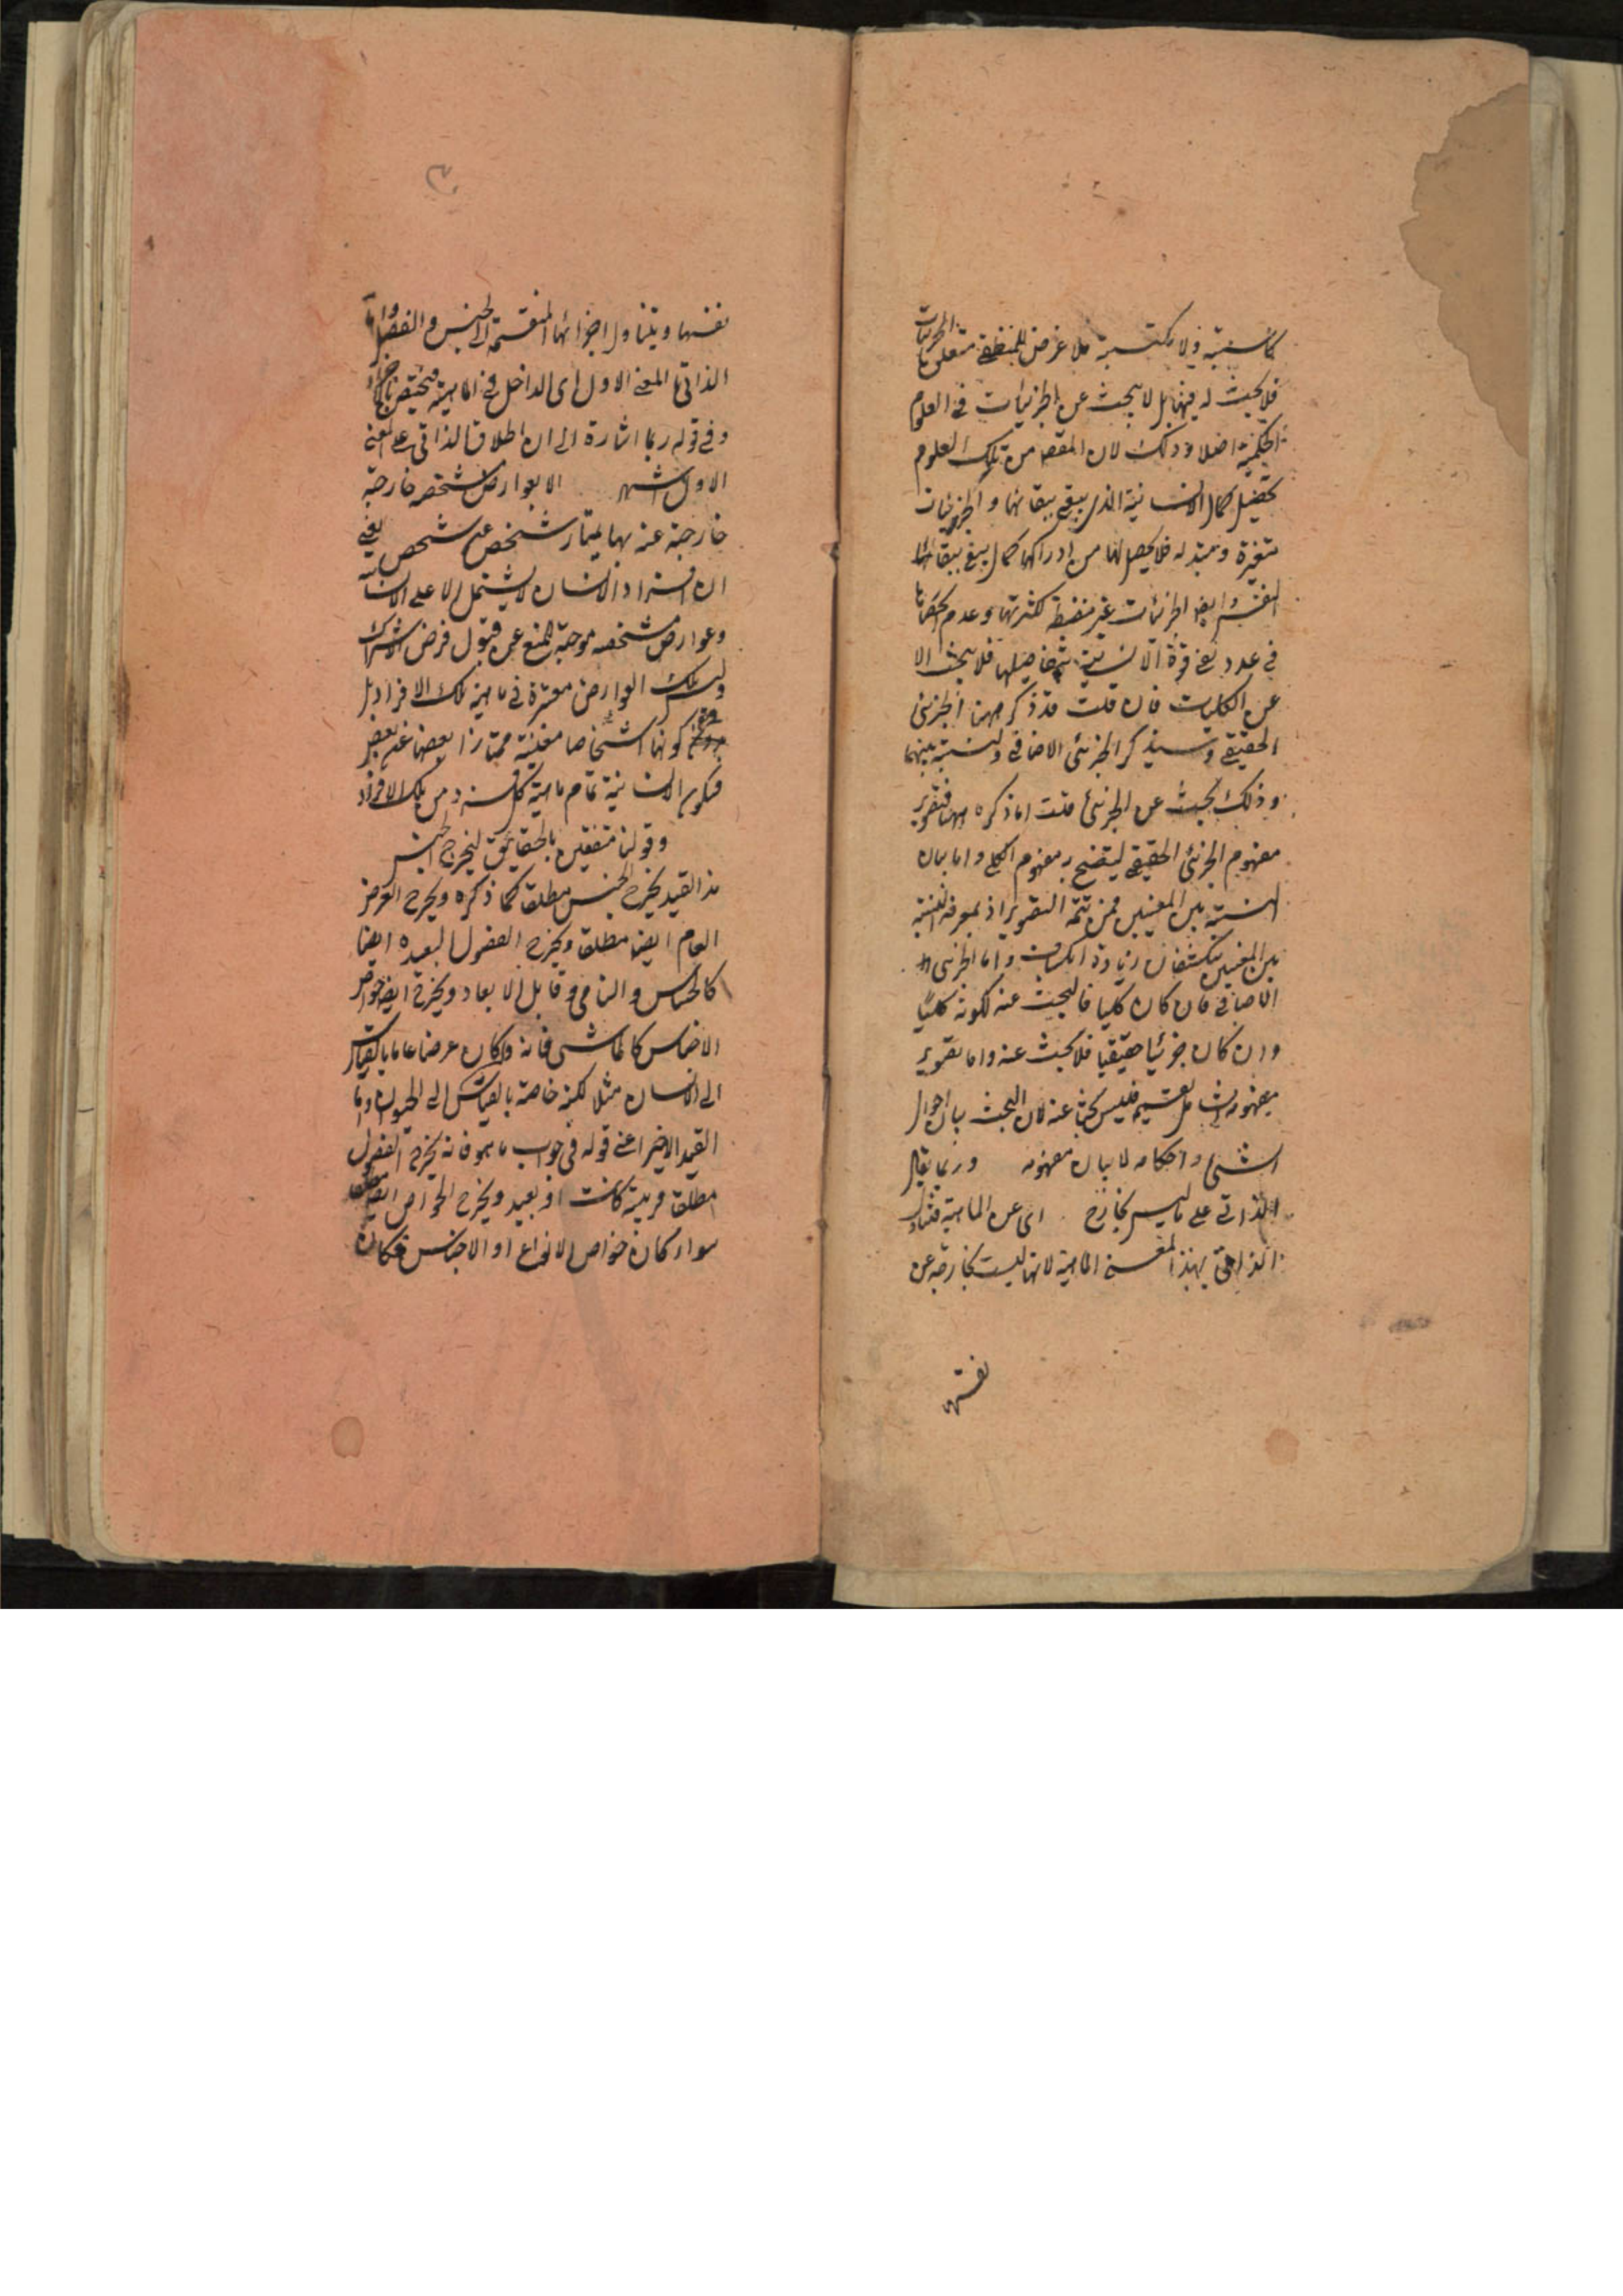 كاسبته ولا مكتسبة فلا غرض للمنطقى متعلق بالجزئيات
فلا بحث له فيها بل لا يبحث عن الجزئيات فى العلوم
الحكمية اصلا وذلك لان المقصد من تلك العلوم
تحصيل كمال الانسانية الذى يبقى ببقائها والجزئيات
متغيرة ومتبدله فلا يحصل لها من ادراكها كمال يبقى ببقائها
النفس وايضا الجزئيات غير منضبطة لكثرتها وعدم انحصارها
فى عدد تفى قوة الانسانية بتفاصيلها فلا يبحث الا
عن الكليات فان قلت قد ذكر ههنا الجزئى
الحقيقى وسيذكر الجزئى الاضافى والنسبة بينهما
وذلك بحث عن الجزئى قلت اما ذكره ههنا فتصوير
مفهوم الجزئى الحقيقى ليتضح به مفهوم الكلى واما بيان
النسبة بين المعنيين فمن تتمة التصوير اذ بمعرفة النسبة
بين المعنيين ينكشفان زيادة انكشاف واما الجزئى
الاضافى فان كان كليا فالبحث عنه لكونه كليا
وان كان جزئيا حقيقيا فلا بحث عنه واما تصوير
مفهومه الشامل لقسميه فليس بحثا عنه لان البحث بيان احوال
الشئ واحكامه لا بيان مفهومه وربما يقال
الذاتى على ما ليس بخارج اى عن الماهية فيتناول
الذاتى بهذا المعنى الماهية لانها ليست بخارجة عن
نفسها
نفسها ويتناول اجزائها المنقسمة الى الجنس والفصل واما
الذاتى بالمعنى الاول اى الداخل فى الماهية فيختص بالاجزاء
وفى قوله ربما اشارة الى ان اطلاق الذاتى على المعنى
الاول اشهر الا بعوارض مشخصه خارجة
خارجة عنه بها يمتاز شخص عن شخص يعنى
ان افراد الانسان لا يشتمل الا على الانسانية
وعوارض مشخصه موجبة للمنع عن قبول فرض الاشتراك
وليس تلك العوارض معتبرة فى ماهية تلك الافراد بل
فى كونها اشخاصا معينة ممتازا بعضها عن بعض
فيكون الانسانية تمام ماهية كل فرد من تلك الافراد
وقولنا متفقين بالحقائق ليخرج الجنس
هذا القيد يخرج الجنس مطلقا كما ذكره ويخرج العرض
العام ايضا مطلقا ويخرج الفصول البعيده ايضا
كالحساس والنامى وقابل الابعاد ويخرج ايضا خواص
الاجناس كالماشى فانه وان كان عرضا عاما بالقياس
الى الانسان مثلا لكنه خاصة بالقياس الى الحيوان واما
القيد الاخير اعنى قوله فى جواب ما هو فانه يخرج الفصول
مطلقا قريبة كانت او بعيد ويخرج الخواص ايضا مطلقا
سواء كان خواص الانواع او الاجناس فكان